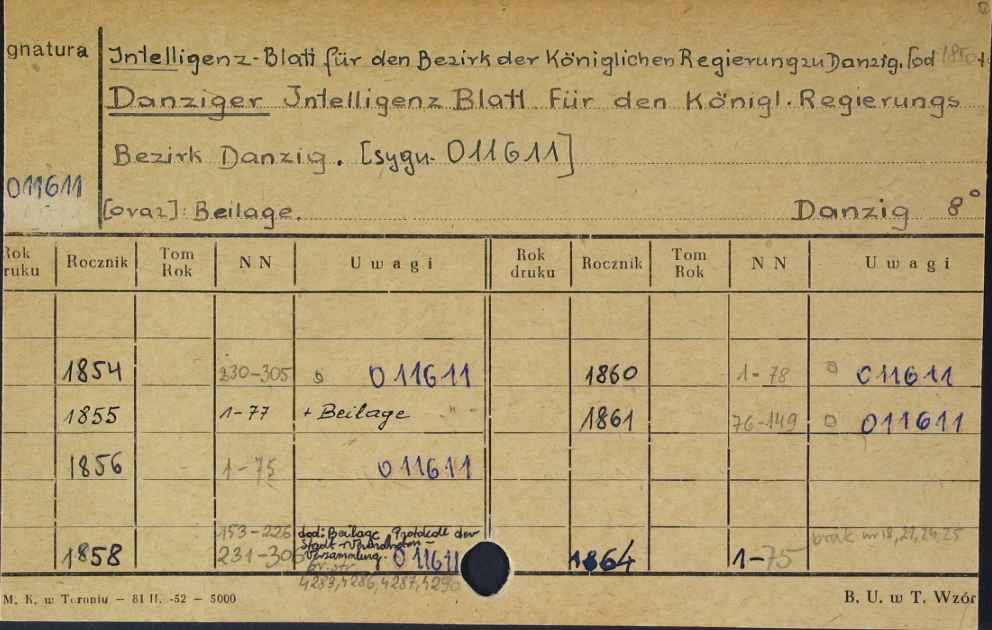 gnatura
Intelligenz-Blatt für den Bezirk der Königlichen Regierung zu Danzig. [od 1850 r.
Danziger Intelligenz Blatt für den Königl. Regierungs
Bezirk Danzig. [sygn. 011611]
011611
[oraz]: Beilage. Danzig 8°
Rok druku Rocznik Tom Rok NN Uwagi Rok druku Rocznik Tom Rok NN Uwagi
1854 230-305 011611 1860 1-78 011611
1855 1-77 + Beilage -"- 1861 76-149 011611
1856 1-75 011611
153-226 dod: Beilage Protokoll der brak nr 18, 21, 24, 25
Stadt-Verordneten-
1858 231-306 Versammlung. 011611 1864 1-75
br. str.
4283, 4286, 4287, 4290
M. K. w Toruniu — 81 II. -52 — 5000 B. U. w T. Wzór